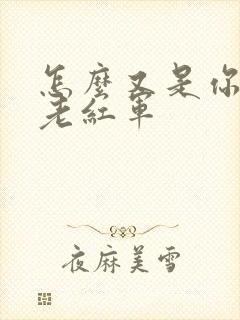 怎麼又是你
老紅軍
夜麻美雪